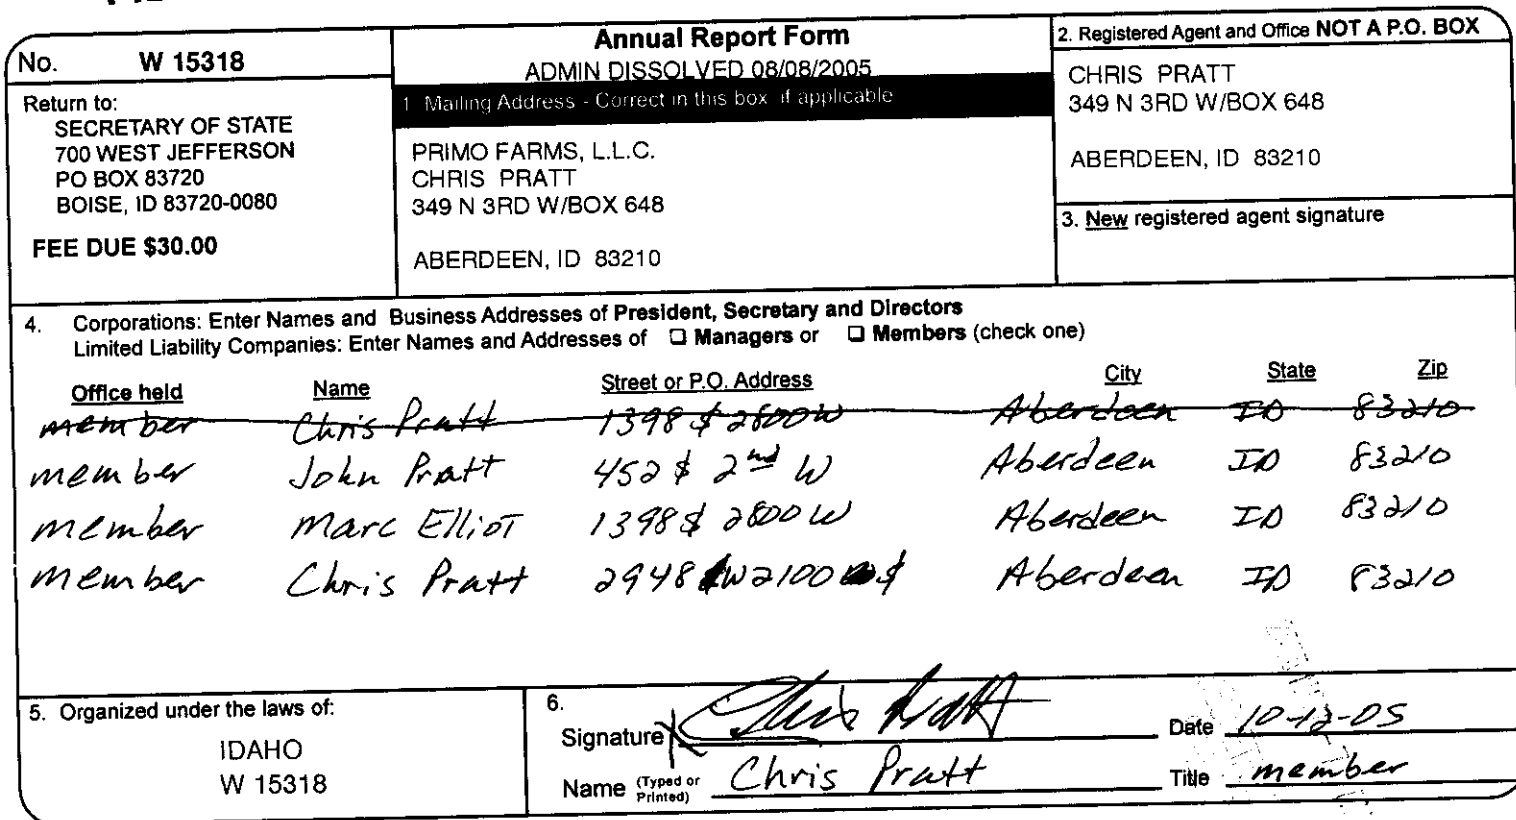 No. W 15318
Return to:
SECRETARY OF STATE
700 WEST JEFFERSON
PO BOX 83720
BOISE, ID 83720-0080
FEE DUE $30.00
Annual Report Form
ADMIN DISSOLVED 08/08/2005
1 Mailing Address - Correct in this box if applicable
PRIMO FARMS, L.L.C.
CHRIS PRATT
349 N 3RD W/BOX 648
ABERDEEN, ID 83210
2. Registered Agent and Office NOT A P.O. BOX
CHRIS PRATT
349 N 3RD W/BOX 648
ABERDEEN, ID 83210
3. New registered agent signature
4. Corporations: Enter Names and Business Addresses of President, Secretary and Directors
Limited Liability Companies: Enter Names and Addresses of ❑ Managers or ❑ Members (check one)
Office held Name Street or P.O. Address City State Zip
member Chris Pratt 1398 S 2800 W Aberdeen ID 83210
member John Pratt 452 S 2nd W Aberdeen ID 83210
member Marc Elliot 1398 S 2800 W Aberdeen ID 83210
member Chris Pratt 2948 W 2100 S Aberdeen ID 83210
5. Organized under the laws of:
IDAHO
W 15318
6.
Signature X Chris Pratt Date 10-12-05
Name (Typed or Printed) Chris Pratt Title member